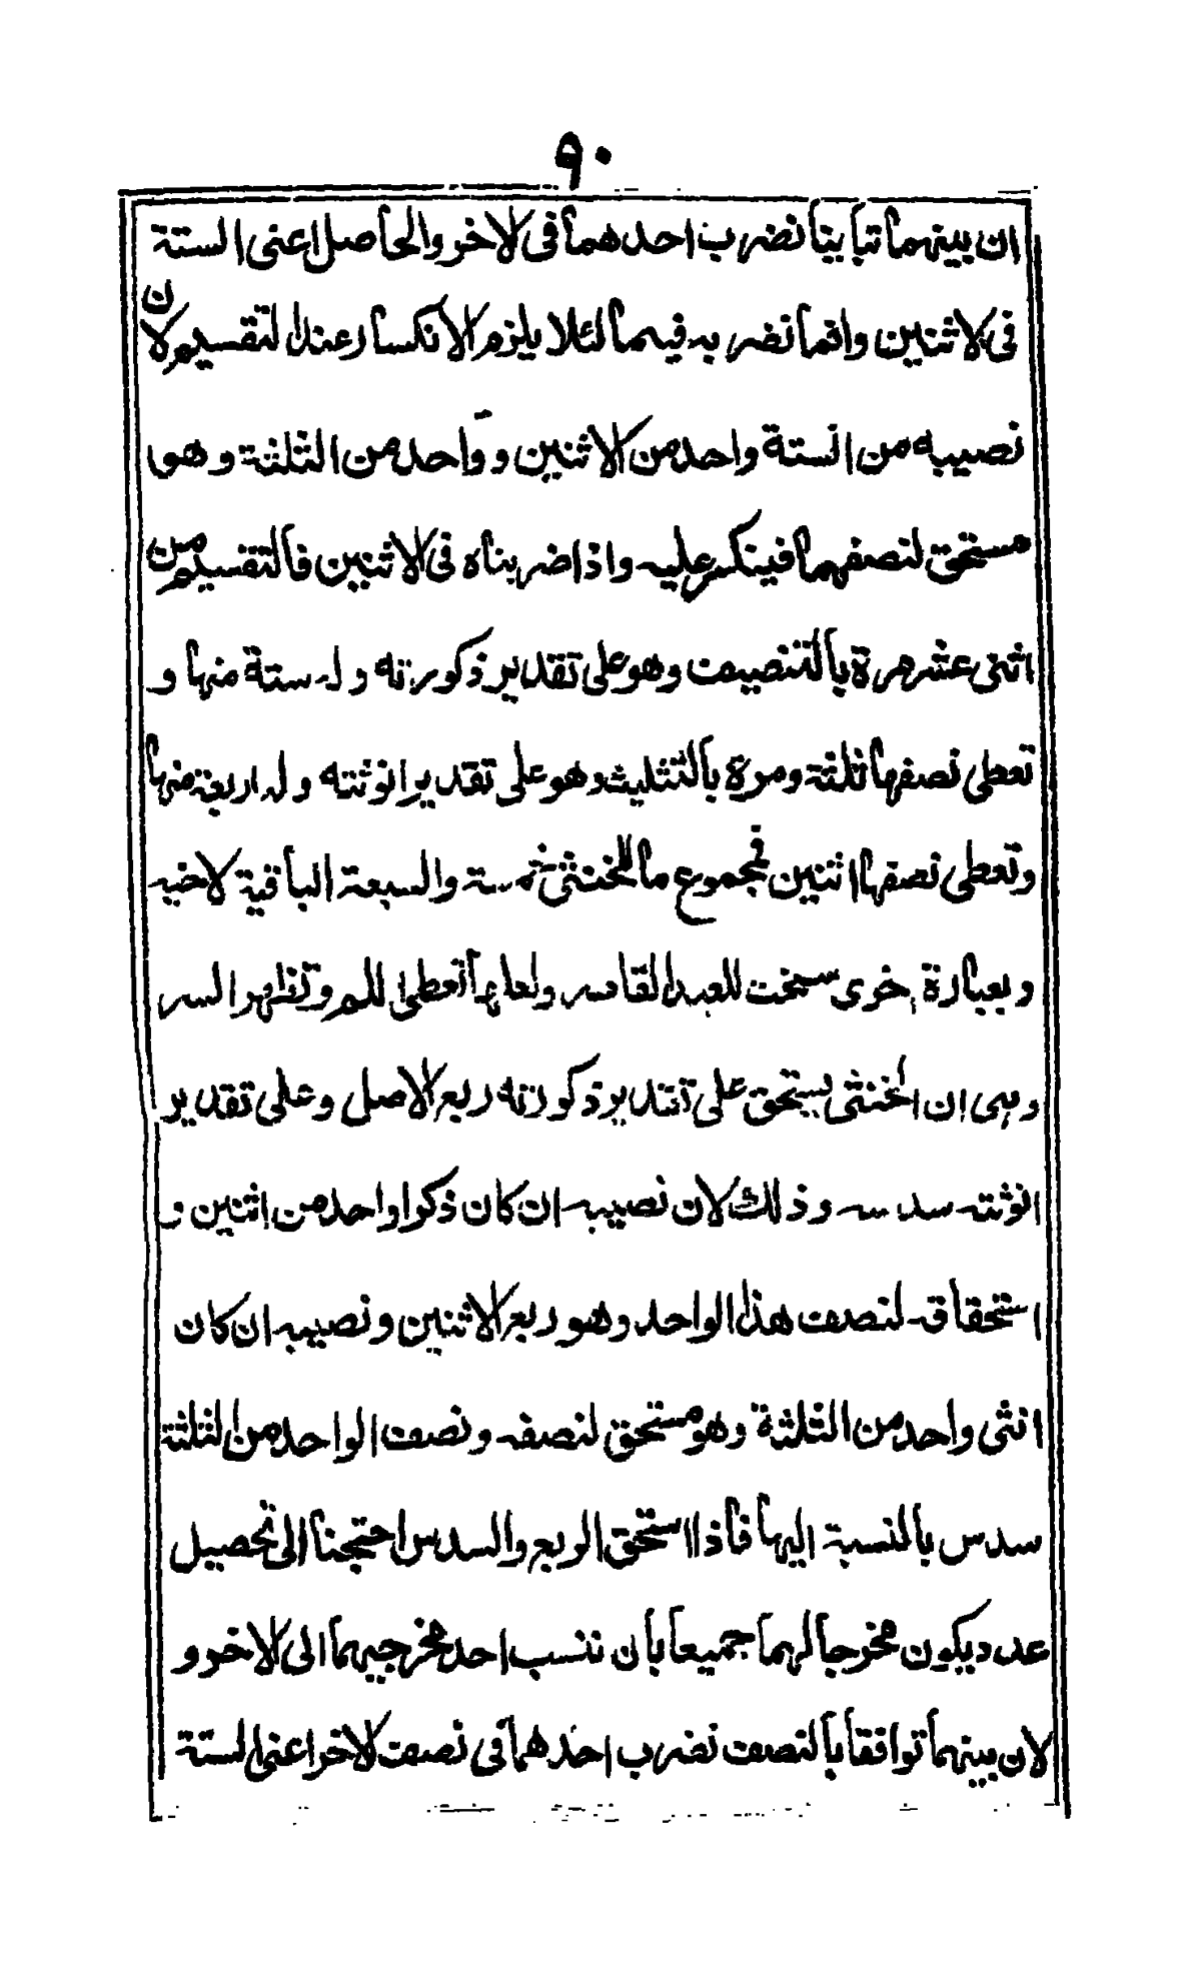 ٩٠
ان بينهما تباينا نضرب احدهما فى الاخر والحاصل اعنى الستة
فى الاثنين وانما نضربه فيهما لئلا يلزم الانكسار عند التقسيم لان
نصيبه من الستة واحد من الاثنين و واحد من الثلثة وهو
مستحق لنصفهما فينكسر عليه واذا ضربناه فى الاثنين فالتقسيم من
اثنى عشر مرة بالتنصيف وهو على تقدير ذكورته وله ستة منها و
تعطى نصفها ثلثة ومرة بالتثليث وهو على تقدير انوثته وله اربعة منها
وتعطى نصفها اثنين فمجموع ما للخنثى خمسة والسبعة الباقية لاخيه
وبعبارة اخرى سنحت للعبد القاصر ولعلها تعطى وتظهر السر
وهى ان الخنثى يستحق على تقدير ذكورته ربع الاصل وعلى تقدير
انوثته سدسه وذلك لان نصيبه ان كان ذكرا واحد من اثنين و
استحقاقه لنصف هذا الواحد وهو ربع الاثنين ونصيبه ان كان
انثى واحد من الثلثة وهو مستحق لنصفه ونصف الواحد من الثلثة
سدس بالنسبة اليها فاذا استحق الربع والسدس احتجنا الى تحصيل
عدد يكون مخرجا لهما جميعا بان ننسب احد مخرجيهما الى الاخر و
لان بينهما توافقا بالنصف نضرب احدهما فى نصف الاخر اعنى الستة